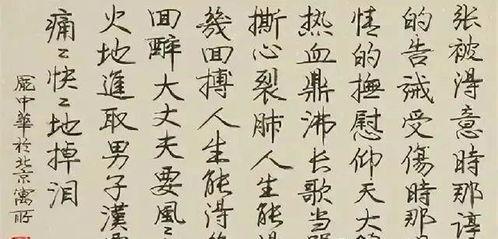 张被得意時那諄
的告诫受傷時那
情的撫慰仰天大
热血鼎沸长歌當
撕心裂肺人生能
幾回搏人生能得
回醉大丈夫要風〻
火地進取男子漢
痛〻快〻地掉泪
庞中華於北京寓所